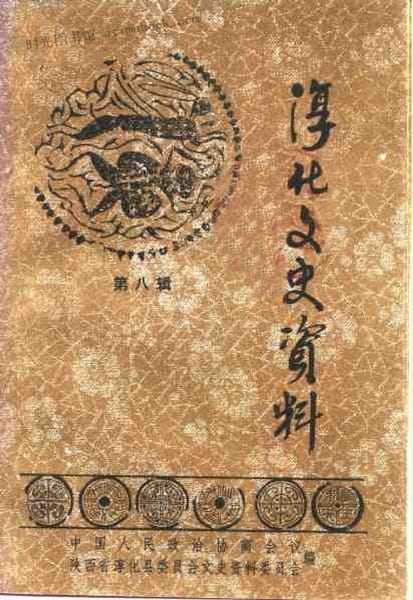 时光图书馆
淳化文史资料
第八辑
中国人民政治协商会议
陕西省淳化县委员会文史资料委员会
编